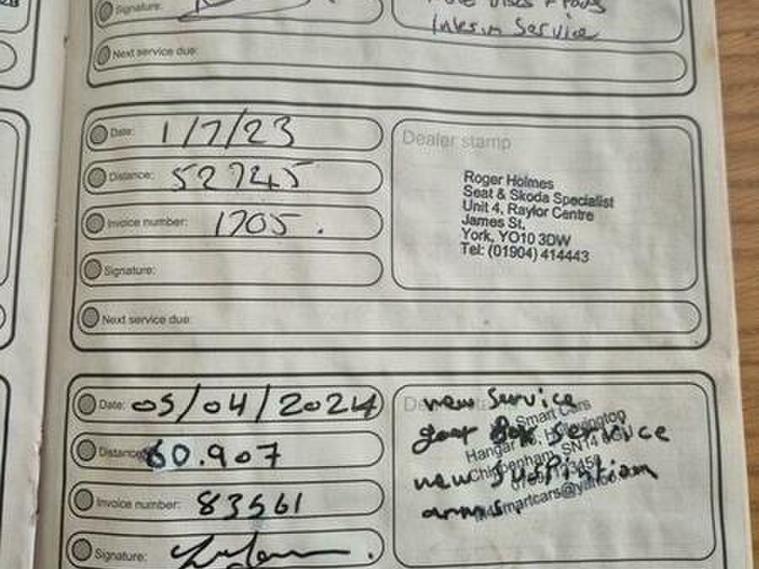 Signature:
Interim Service
Next service due:
Date: 1/7/23
Distance: 52745
Invoice number: 1705.
Signature:
Next service due:
Dealer stamp
Roger Holmes
Seat & Skoda Specialist
Unit 4, Raylor Centre
James St,
York, YO10 3DW
Tel: (01904) 414443
Date: 05/04/2024
Distance 60.907
Invoice number: 83561
Signature:
new Service
Smart Cars
gear Box Service
Hangar
Chippenham, SN14
new
arms.
smartcars@yahoo